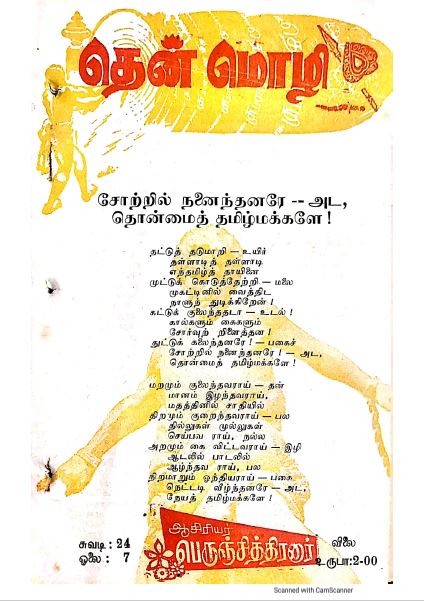 தென் மொழி
சோற்றில் நனைந்தனரே -- அட,
தொன்மைத் தமிழ்மக்களே !
தட்டுத் தடுமாறி — உயிர்
தள்ளாடித் தள்ளாடி
எந்தமிழ்த் தாயினை
முட்டுக் கொடுத்தேற்றி — மலை
முகட்டினில் வைத்திட
நாளுந் துடிக்கிறேன் !
கட்டுக் குலைந்ததடா — உடல் !
கால்களும் கைகளும்
சோர்வுற் றிளைத்தன !
துட்டுக் கலைந்தனரே ! — பகைச்
சோற்றில் நனைந்தனரே ! — அட,
தொன்மைத் தமிழ்மக்களே !
மறமும் குலைந்தவராய் — தன்
மானம் இழந்தவராய்,
மதத்தினில் சாதியில்
திறமும் குறைந்தவராய் — பல
தில்லுகள் முல்லுகள்
செய்பவ ராய், நல்ல
அறமும் கை விட்டவராய் — இழி
ஆடலில் பாடலில்
ஆழ்ந்தவ ராய், பல
நிறமாறும் ஓந்தியராய் — பகை
நெட்டடி வீழ்ந்தனரே — அட,
தேயத் தமிழ்மக்களே !
ஆசிரியர்
பெருஞ்சித்திரனார்
சுவடி : 24
ஓலை : 7
விலை
உருபா:2-00
Scanned with CamScanner